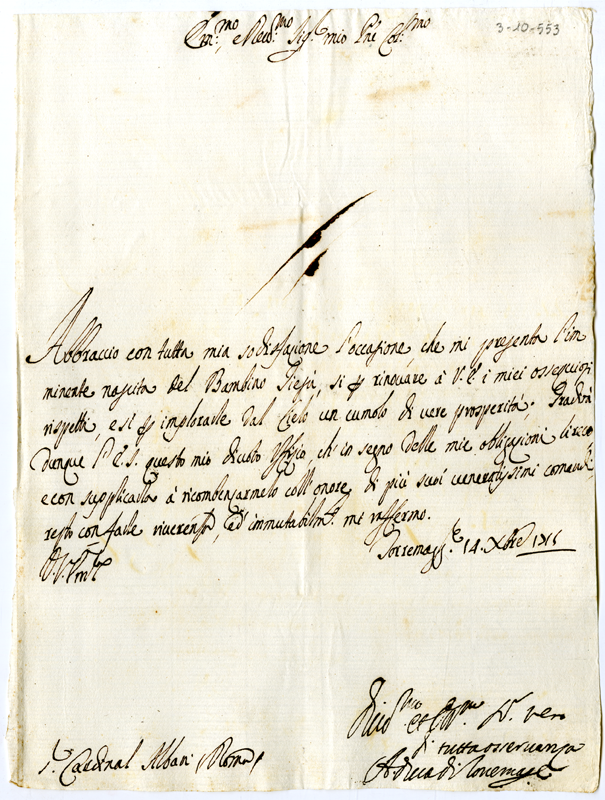 3-10-553
Em.mo, e Reu.mo Sig.r mio Pñe Col.mo
Abbraccio con tutta mia sodisfazione l'occasione, che mi presenta l'im
minente nascita del Bambino Giesù, sì p rinouare à V. E. i miei ossequiosi
rispetti, e sì p implorarle dal Cielo un cumolo di vere prosperità; Gradirà
dunque l'E. S. questo mio diuoto Uffizio, ch'in segno delle mie obligazioni
e con supplicarla à ricompensarmelo coll'onore di più suoi veneratissimi comandi
resto con farle riuerenza, ed immutabilm.te mi raffermo.
Torremagg.re 14. Xbre
Di V. Em.za
Diuo.mo et S.r vero
di tutta osseruanza
Il Duca di Torremagg.e
S.r Cardinal Albani Roma